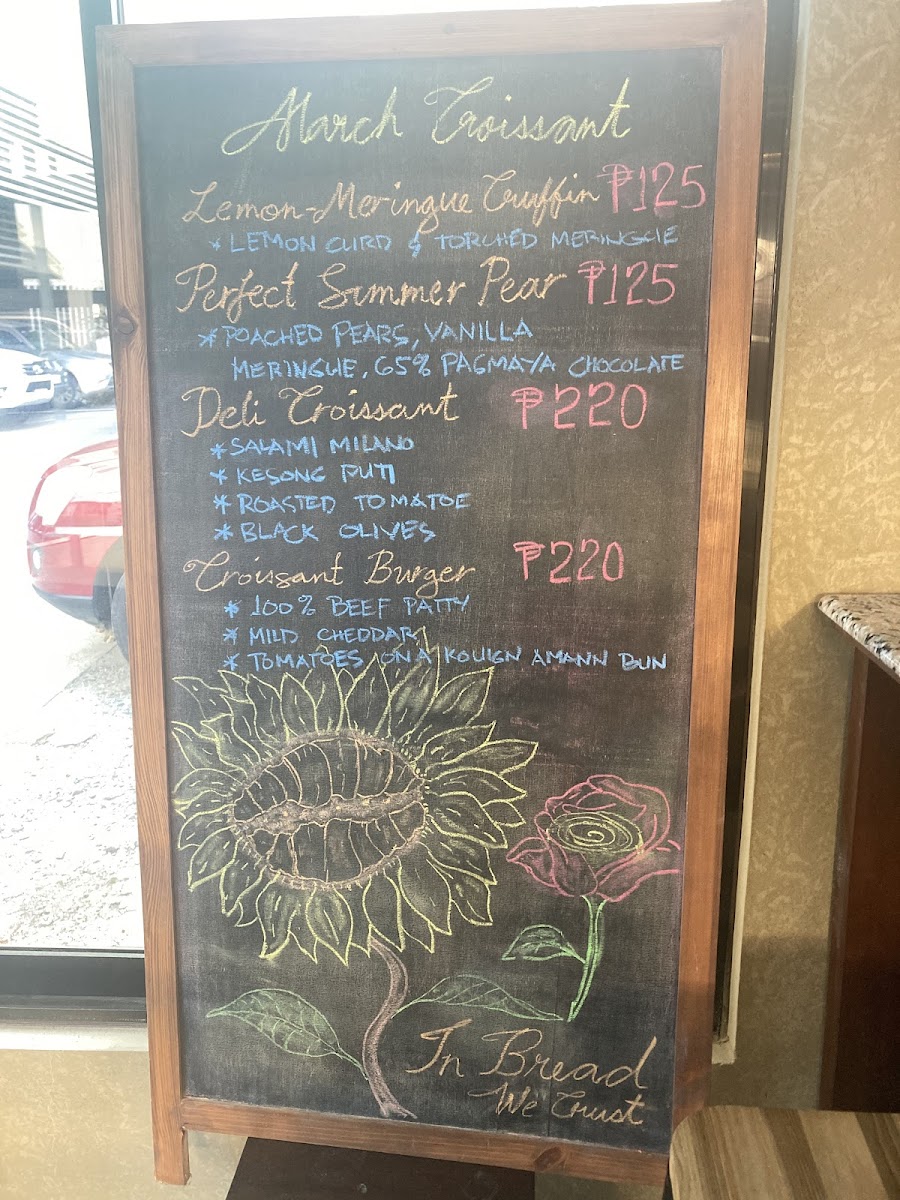 March Croissant
Lemon-Meringue Cruffin ₱125
* LEMON CURD & TORCHED MERINGUE
Perfect Summer Pear ₱125
* POACHED PEARS, VANILLA
MERINGUE, 65% PAGMAYA CHOCOLATE
Deli Croissant ₱220
* SALAMI MILANO
* KESONG PUTI
* ROASTED TOMATOE
* BLACK OLIVES
Croissant Burger ₱220
* 100% BEEF PATTY
* MILD CHEDDAR
* TOMATOES ON A KOUIGN AMANN BUN
In Bread
We Trust